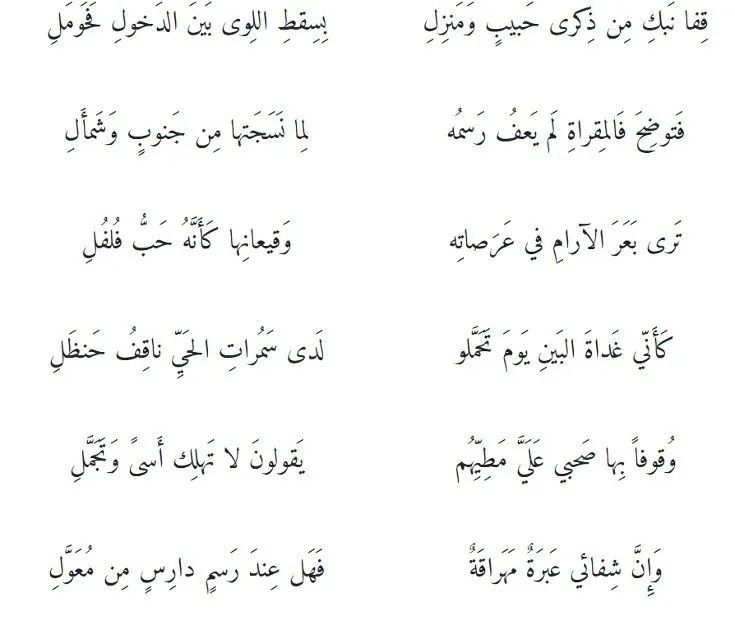 قِفا نَبكِ مِن ذِكرى حَبيبٍ وَمَنزِلِ بِسِقطِ اللِوى بَينَ الدَخولِ فَحَومَلِ
فَتوضِحَ فَالمِقراةِ لَم يَعفُ رَسمُه لِما نَسَجَتها مِن جَنوبٍ وَشَمأَلِ
تَرى بَعَرَ الآرامِ في عَرَصاتِه وَقيعانِها كَأَنَّهُ حَبُّ فُلفُلِ
كَأَنّي غَداةَ البَينِ يَومَ تَحَمَّلو لَدى سَمُراتِ الحَيِّ ناقِفُ حَنظَلِ
وُقوفاً بِها صَحبي عَلَيَّ مَطِيِّهُم يَقولونَ لا تَهلِك أَسىً وَتَجَمَّلِ
وَإِنَّ شِفائي عَبرَةٌ مَهَراقَةٌ فَهَل عِندَ رَسمٍ دارِسٍ مِن مُعَوَّلِ